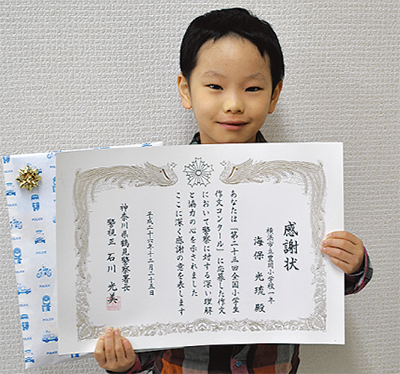 感謝状
横浜市立豊岡小学校一年
海保光琉殿
あなたは「第二十五回全国小学生
作文コンクール」に応募した作文
において警察に対する深い理解
と協力の心を示されました
ここに深く感謝の意を表します
平成二十六年十二月二十五日
神奈川県鶴見警察署長
警視正 石川光美
POLICE